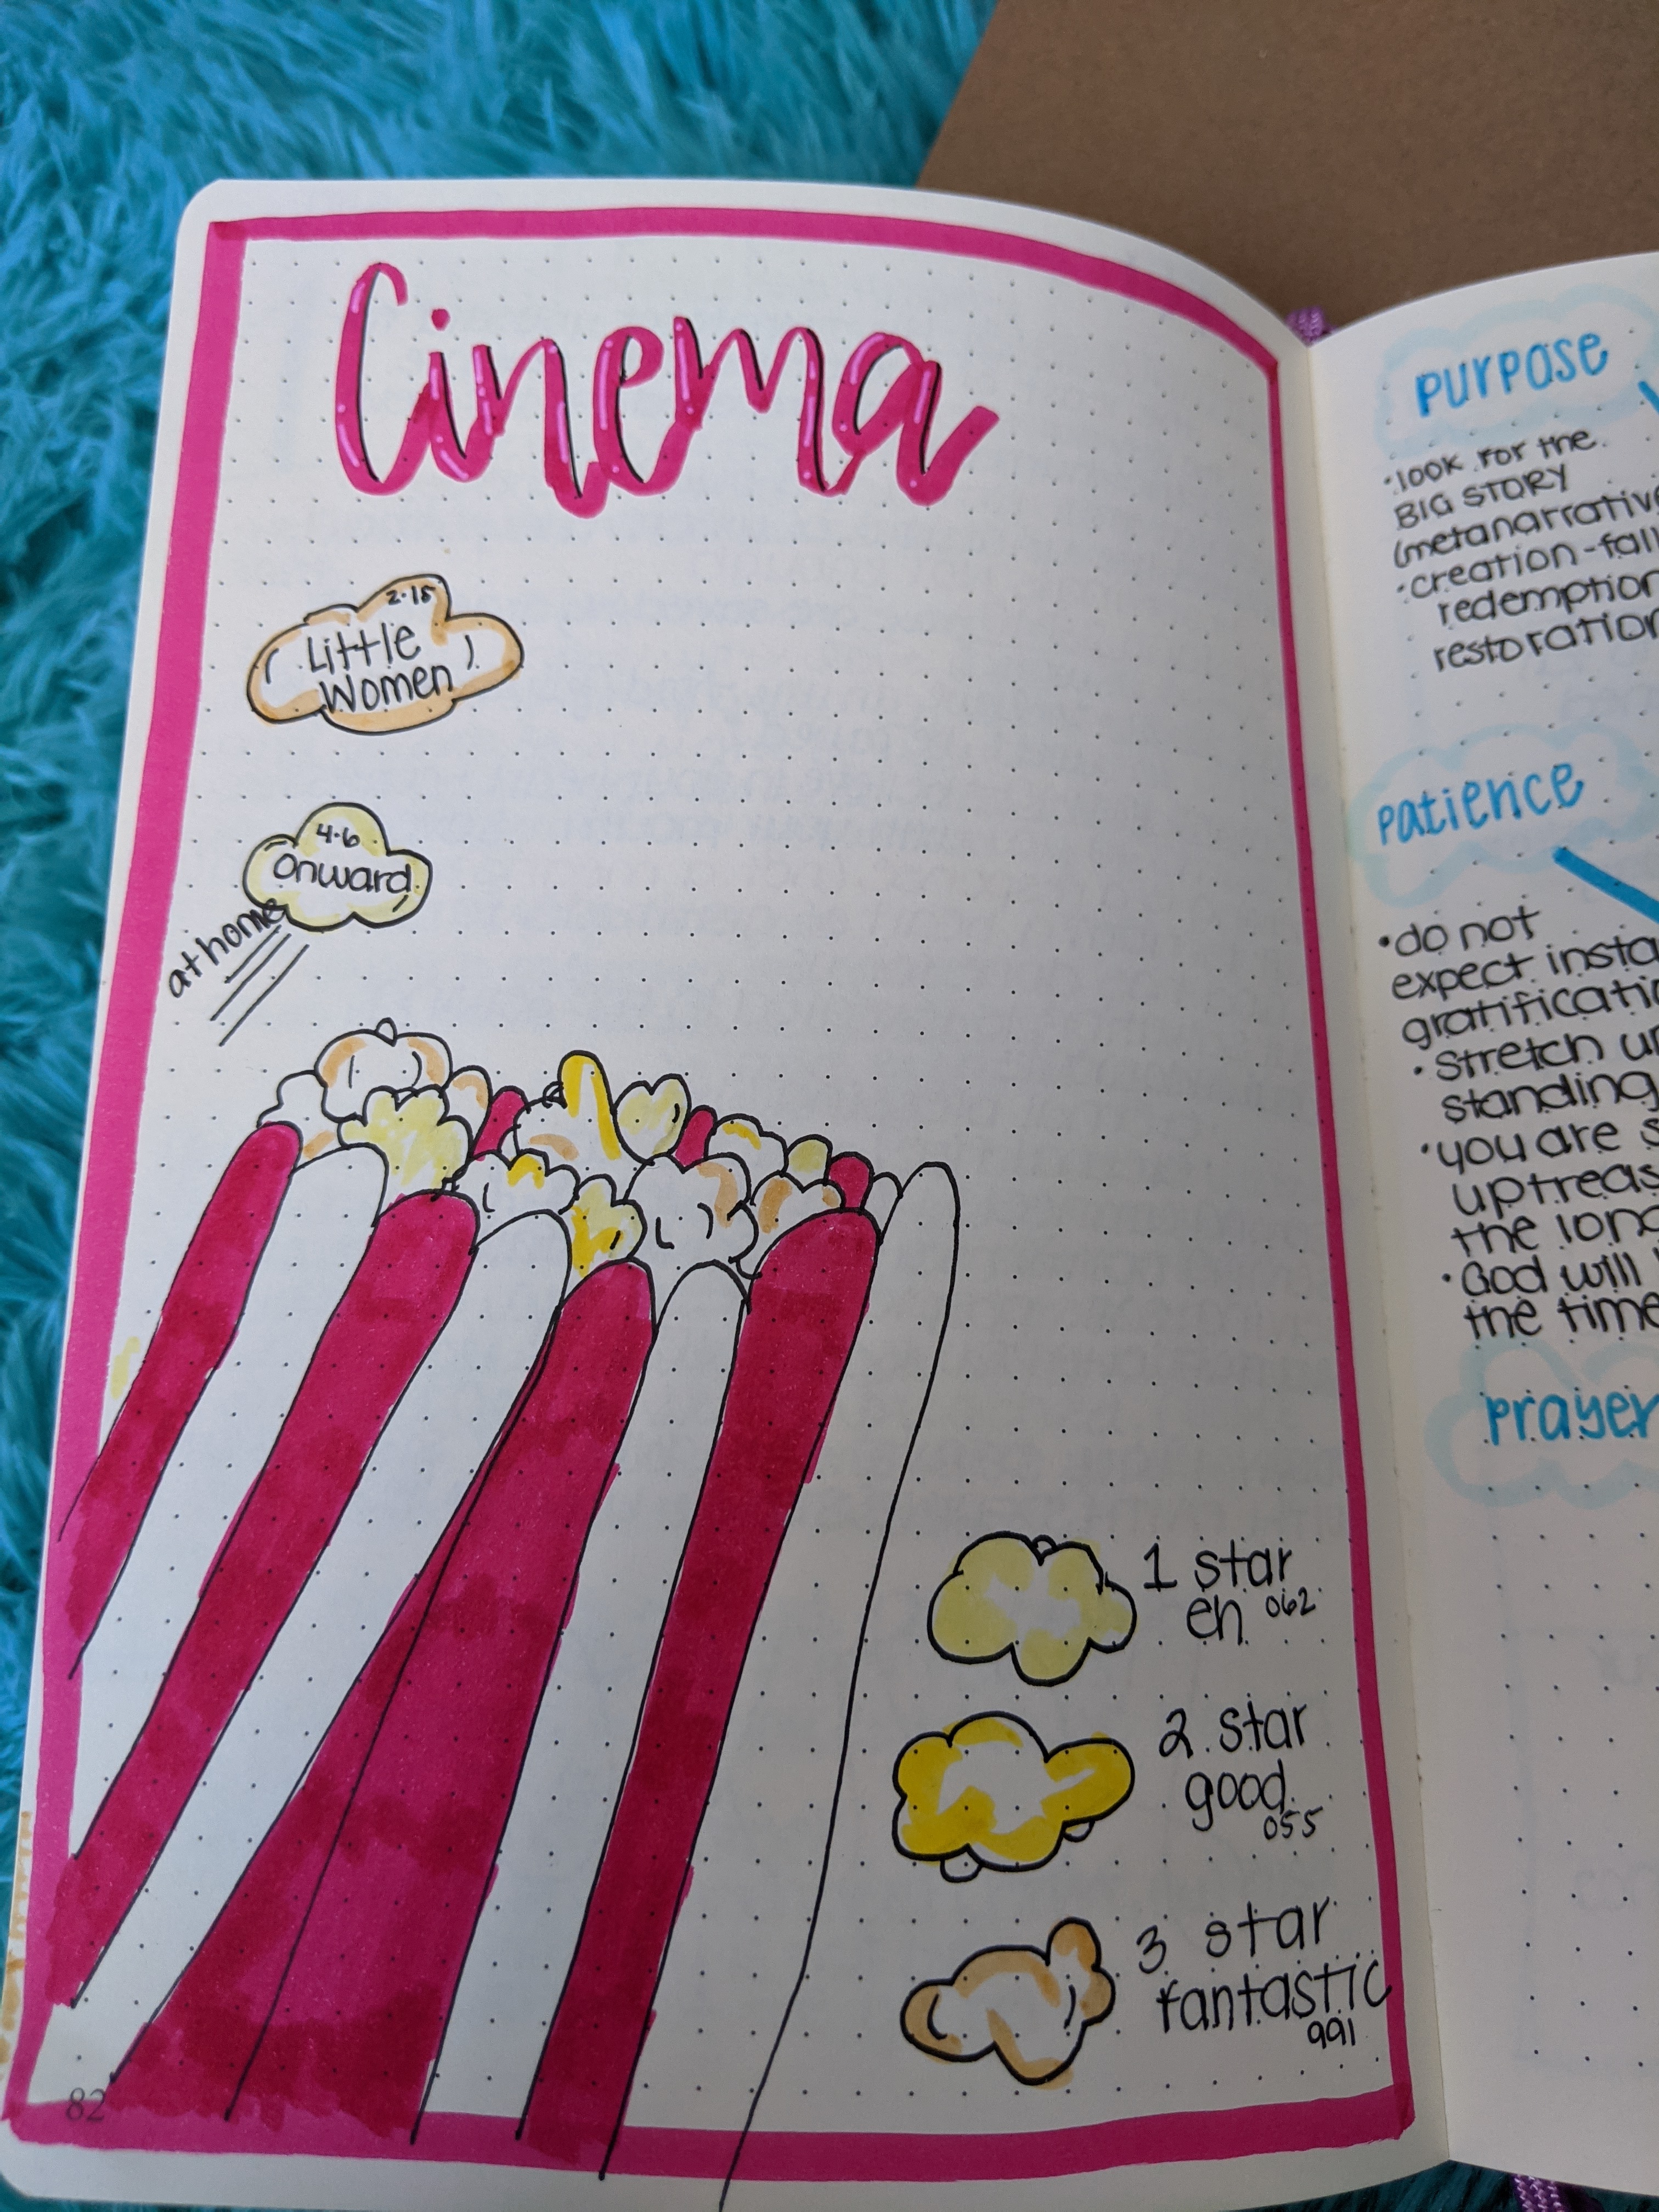 Cinema
2.15
Little
Women
4.6
Onward
at home
1 star
eh 062
2 star
good
055
3 star
fantastic
991
82
purpose
•look for the
BIG STORY
(metanarrative
•creation-fall
redemption
restoration
patience
•do not
expect insta
gratificatio
•stretch un
standing
•you are s
up treas
the long
•God will
the time
prayer